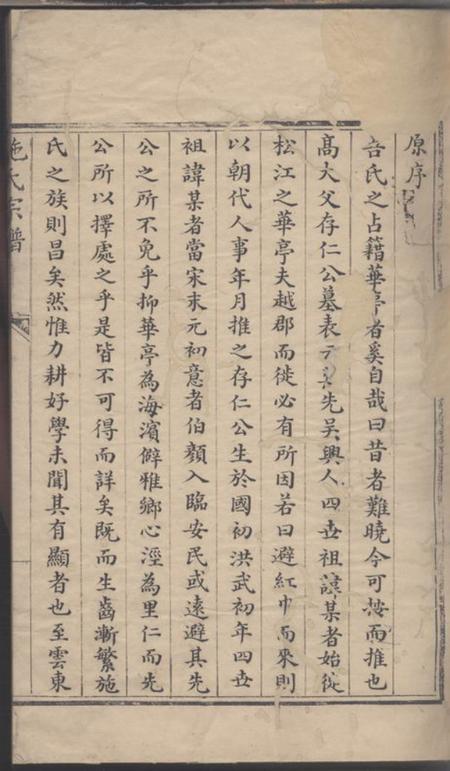 原序
吾氏之占籍華亭者奚自哉曰昔者難曉今可攷而推也
高大父存仁公墓表云其先吳興人四世祖諱某者始從
松江之華亭夫越郡而徙必有所因若曰避紅巾而來則
以朝代人事年月推之存仁公生於國初洪武初年四世
祖諱某者當宋末元初意者伯顏入臨安民或遠避其先
公之所不免乎抑華亭為海濱僻雅鄉心涇為里仁而先
公所以擇處之乎是皆不可得而詳矣既而生齒漸繁施
氏之族則昌矣然惟力耕好學未聞其有顯者也至雲東
施氏宗譜